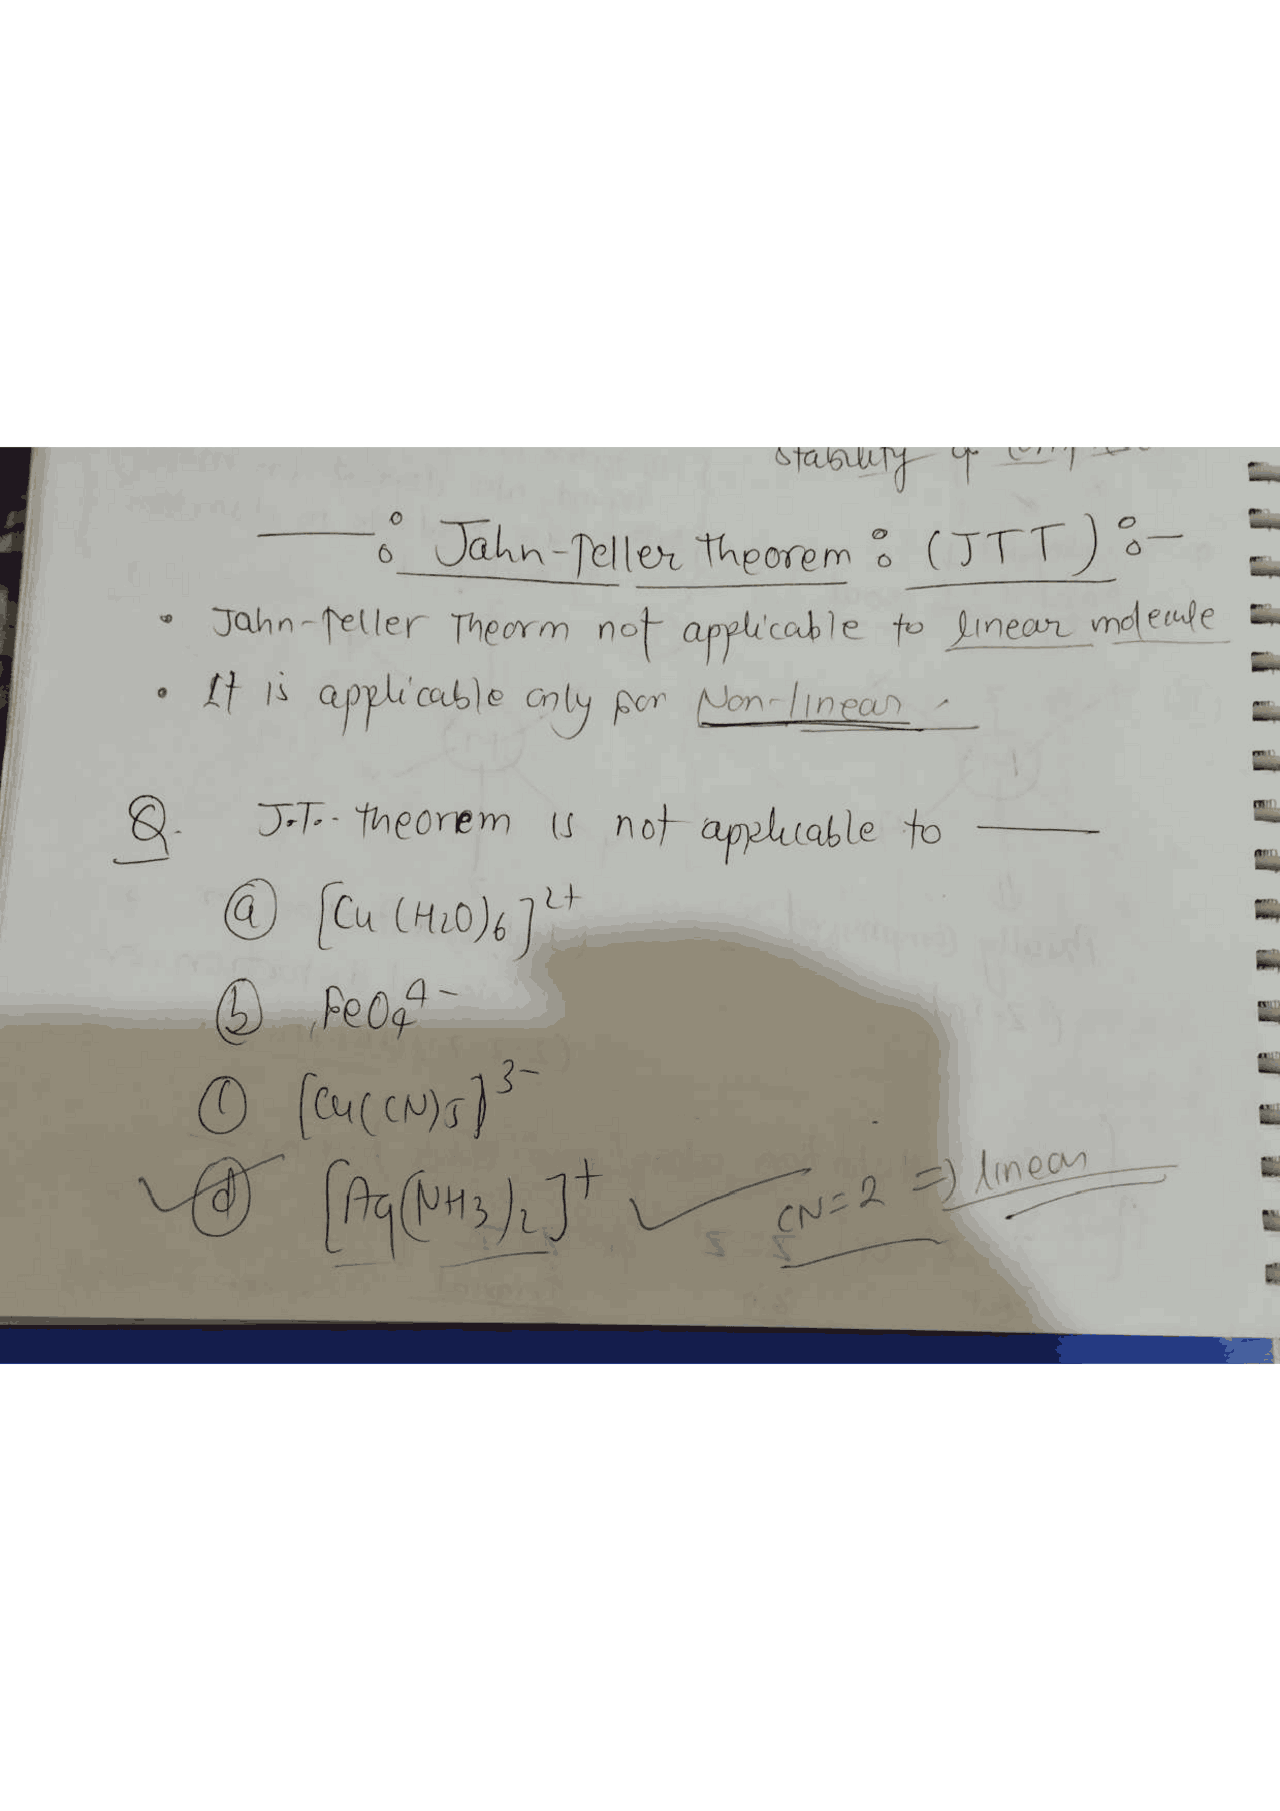 stability of
—: Jahn-Teller theorem : (JTT) :—
• Jahn-Teller Theorm not applicable to linear molecule
• It is applicable only for Non-linear.
Q. J.T. theorem is not applicable to ——
(a) [Cu(H2O)6]²⁺
(b) FeO4⁴⁻
(c) [Cu(CN)5]³⁻
(d) [Ag(NH3)2]⁺ ✓ CN=2 ⇒ linear